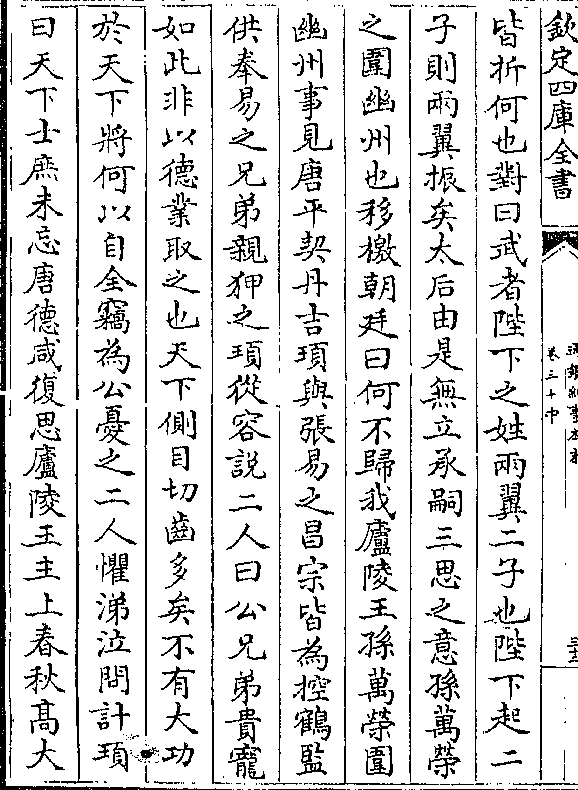 欽定四庫全書
通鑑紀事本末
卷三十中
皆折何也對曰武者陛下之姓兩翼二子也陛下起二
子則兩翼振矣太后由是無立承嗣三思之意孫萬榮
之圍幽州也移檄朝廷曰何不歸我廬陵王孫萬榮圍
幽州事見唐平契丹吉頊與張易之昌宗皆為控鶴監
供奉易之兄弟親狎之頊從容說二人曰公兄弟貴寵
如此非以德業取之也天下側目切齒多矣不有大功
於天下將何以自全竊為公憂之二人懼涕泣問計頊
曰天下士庶未忘唐德咸復思廬陵王主上春秋髙大